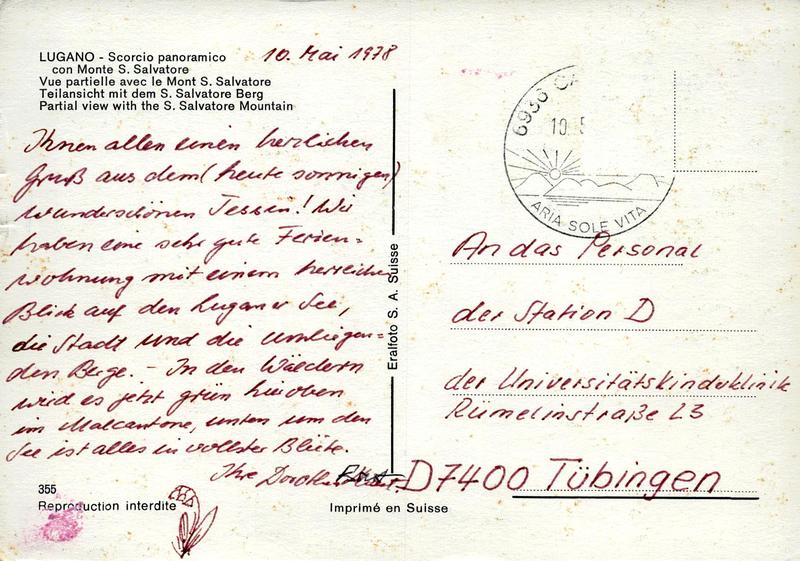 LUGANO - Scorcio panoramico
con Monte S. Salvatore
Vue partielle avec le Mont S. Salvatore
Teilansicht mit dem S. Salvatore Berg
Partial view with the S. Salvatore Mountain
10. Mai 1978
Ihnen allen einen herzlichen
Gruß aus dem (heute sonnigen)
wunderschönen Tessin! Wir
haben eine sehr gute Ferien=
wohnung mit einem herrlichen
Blick auf den Luganer See,
die Stadt und die umliegen=
den Berge. - In den Wäldern
wird es jetzt grün hier oben
im Malcantone, unten um den
See ist alles in vollster Blüte.
Ihre
355
Reproduction interdite
Imprimé en Suisse
Eralfoto S. A. Suisse
6936
10. 5
ARIA SOLE VITA
An das Personal
der Station D
der Universitätskinderklinik
Rümelinstraße 23
D7400 Tübingen